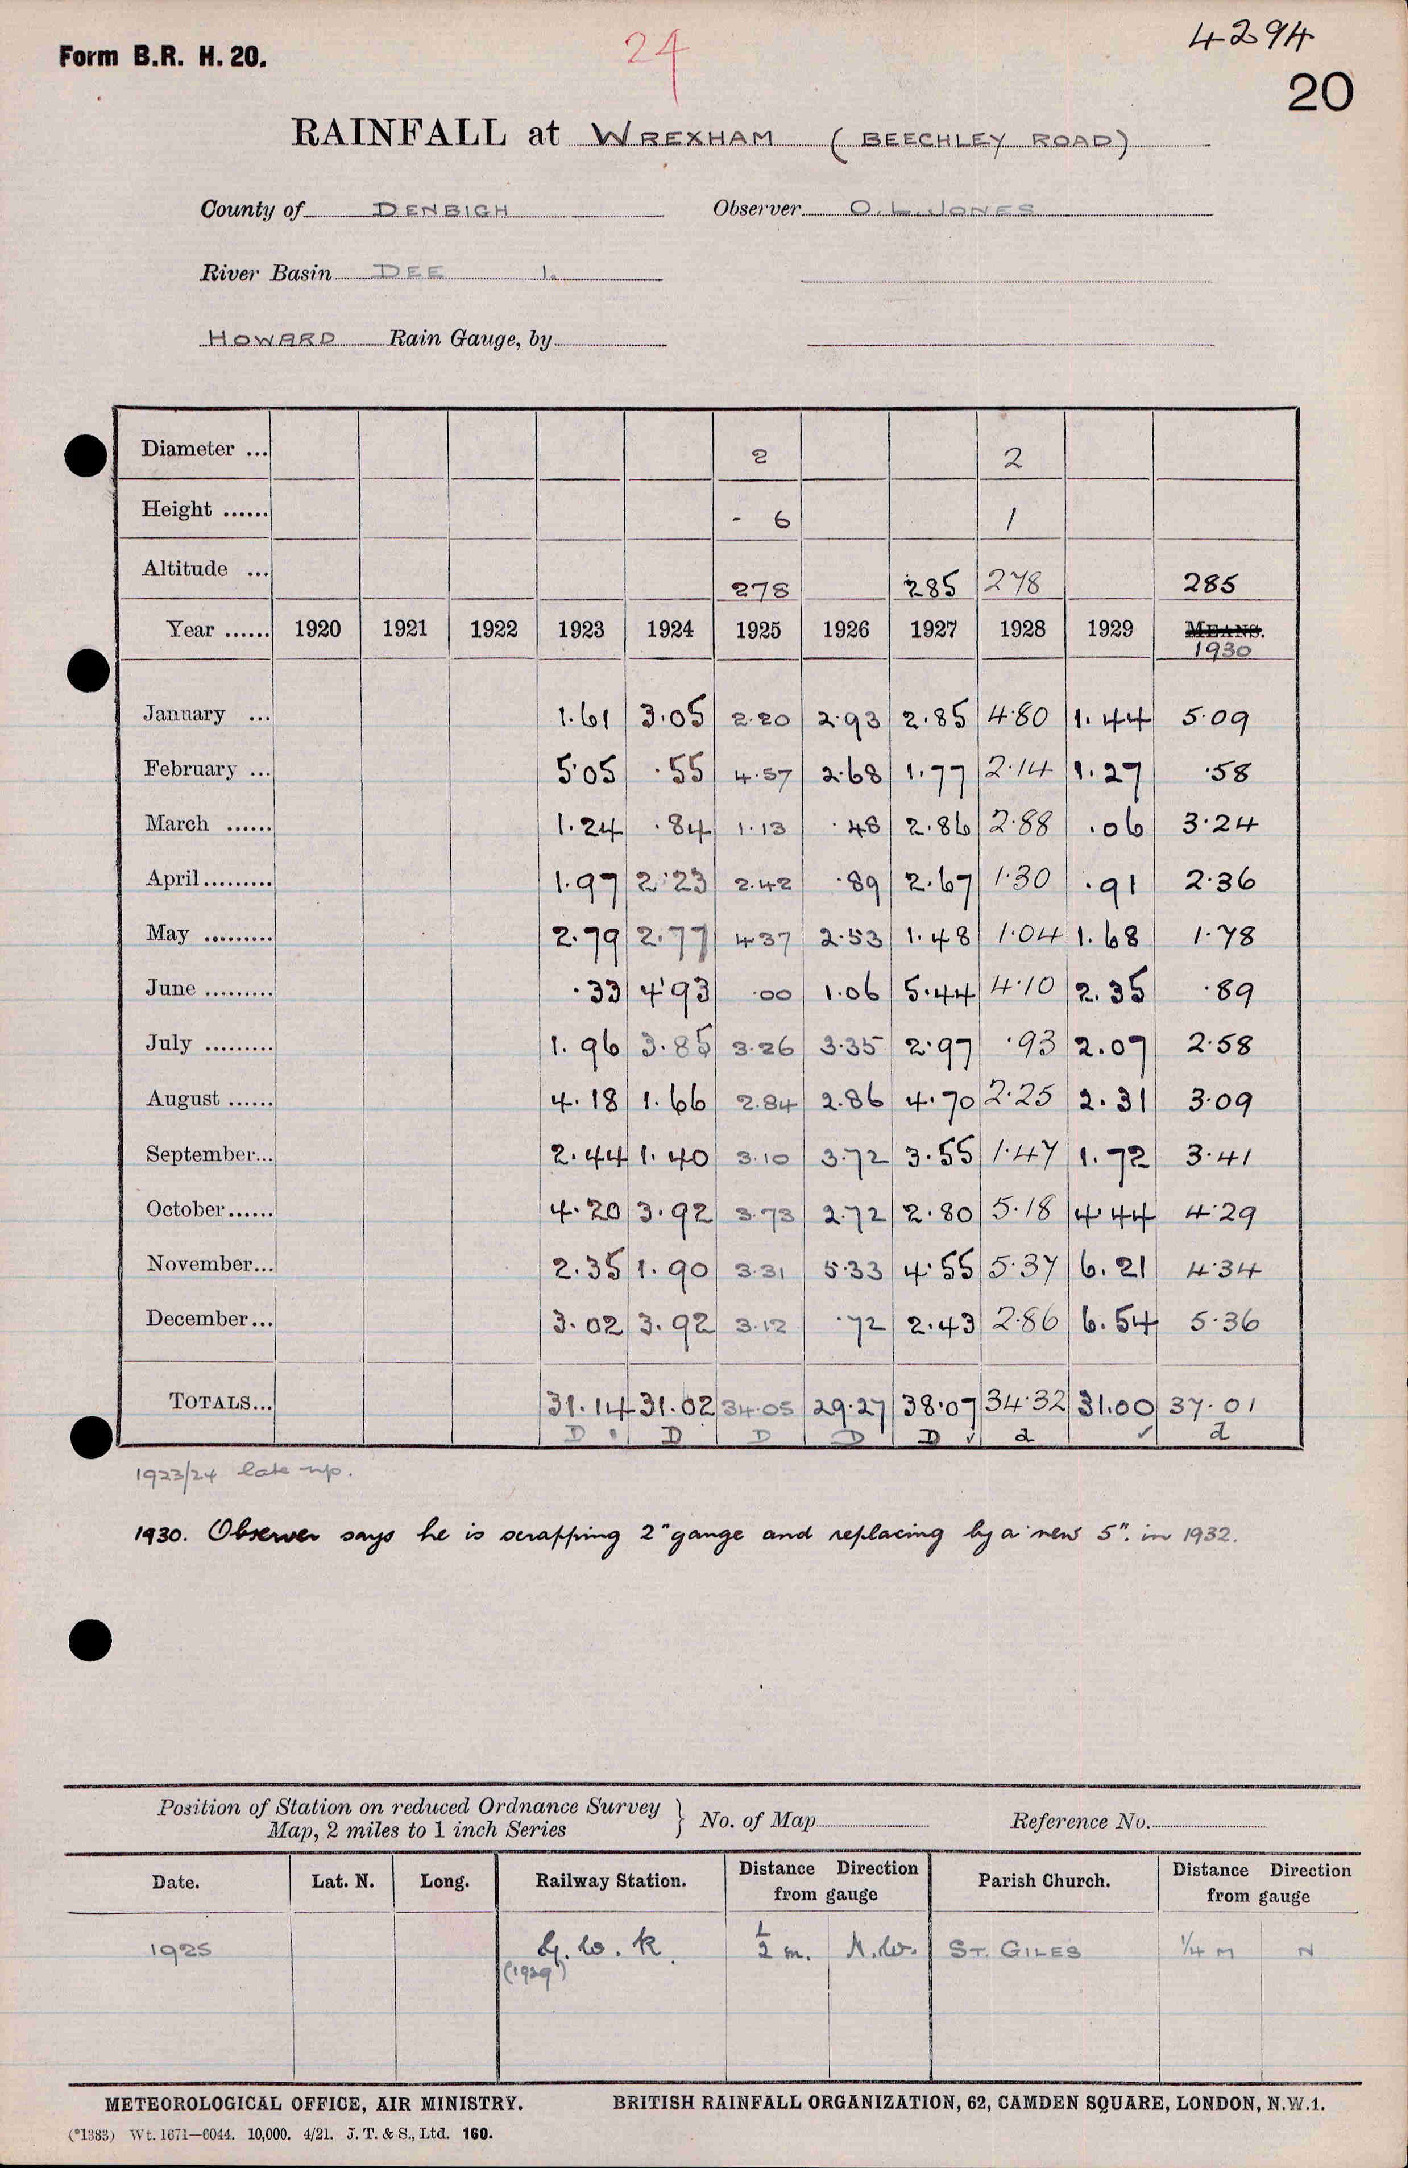 Form B.R. H. 20.
24
4294
20
RAINFALL at WREXHAM (BEECHLEY ROAD)
County of DENBIGH Observer O. L. JONES
River Basin DEE 1.
HOWARD Rain Gauge, by
Diameter ... 2 2
Height ...... - 6 1
Altitude ... 278 285 278 285
Year ...... 1920 1921 1922 1923 1924 1925 1926 1927 1928 1929 MEANS.
1930
January ... 1.61 3.05 2.20 2.93 2.85 4.80 1.44 5.09
February ... 5.05 .55 4.57 2.68 1.77 2.14 1.27 .58
March ...... 1.24 .84 1.13 .48 2.86 2.88 .06 3.24
April ......... 1.97 2.23 2.42 .89 2.67 1.30 .91 2.36
May ......... 2.79 2.77 4.37 2.53 1.48 1.04 1.68 1.78
June ......... .33 4.93 .00 1.06 5.44 4.10 2.35 .89
July ......... 1.96 3.85 3.26 3.35 2.97 .93 2.07 2.58
August ...... 4.18 1.66 2.84 2.86 4.70 2.25 2.31 3.09
September... 2.44 1.40 3.10 3.72 3.55 1.47 1.72 3.41
October...... 4.20 3.92 3.73 2.72 2.80 5.18 4.44 4.29
November... 2.35 1.90 3.31 5.33 4.55 5.37 6.21 4.34
December... 3.02 3.92 3.12 .72 2.43 2.86 6.54 5.36
TOTALS... 31.14 31.02 34.05 29.27 38.07 34.32 31.00 37.01
D D D D D ✓ d ✓ d
1923/24 late
1930. Observer says he is scrapping 2" gauge and replacing by a new 5". in 1932.
Position of Station on reduced Ordnance Survey
Map, 2 miles to 1 inch Series } No. of Map Reference No.
Date. Lat. N. Long. Railway Station. Distance Direction from gauge Parish Church. Distance Direction from gauge
1925 G. W. R. 1/2 m. N.W. ST. GILES 1/4 M N
(1929)
METEOROLOGICAL OFFICE, AIR MINISTRY. BRITISH RAINFALL ORGANIZATION, 62, CAMDEN SQUARE, LONDON, N.W.1.
(*1383) Wt. 1671—6044. 10,000. 4/21. J. T. & S., Ltd. 160.